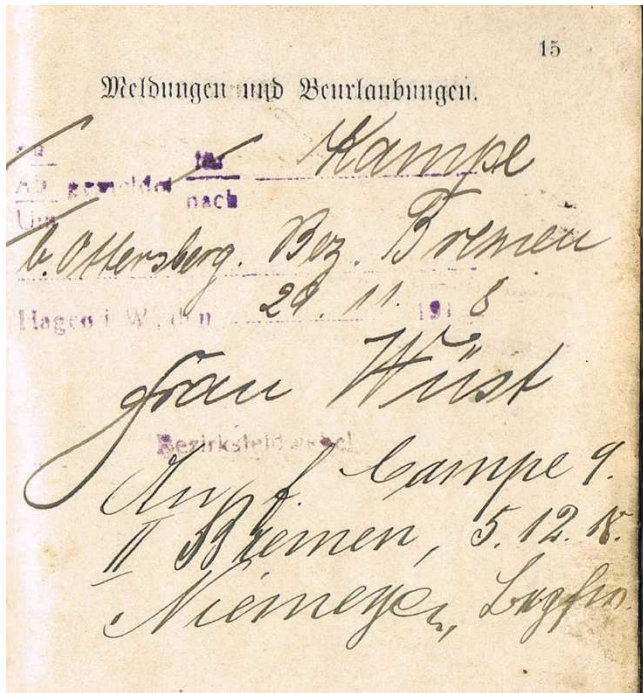 15
Meldungen und Beurlaubungen.
Ab gemeldet nach Kampe
Um
b. Ottersberg. Bez. Bremen
Hagen i. W., den 29. 11. 1918
Frau Wüst
Bezirksfeldwebel
Campe 9.
II Bremen, 5. 12. 18.
Niemeyer,